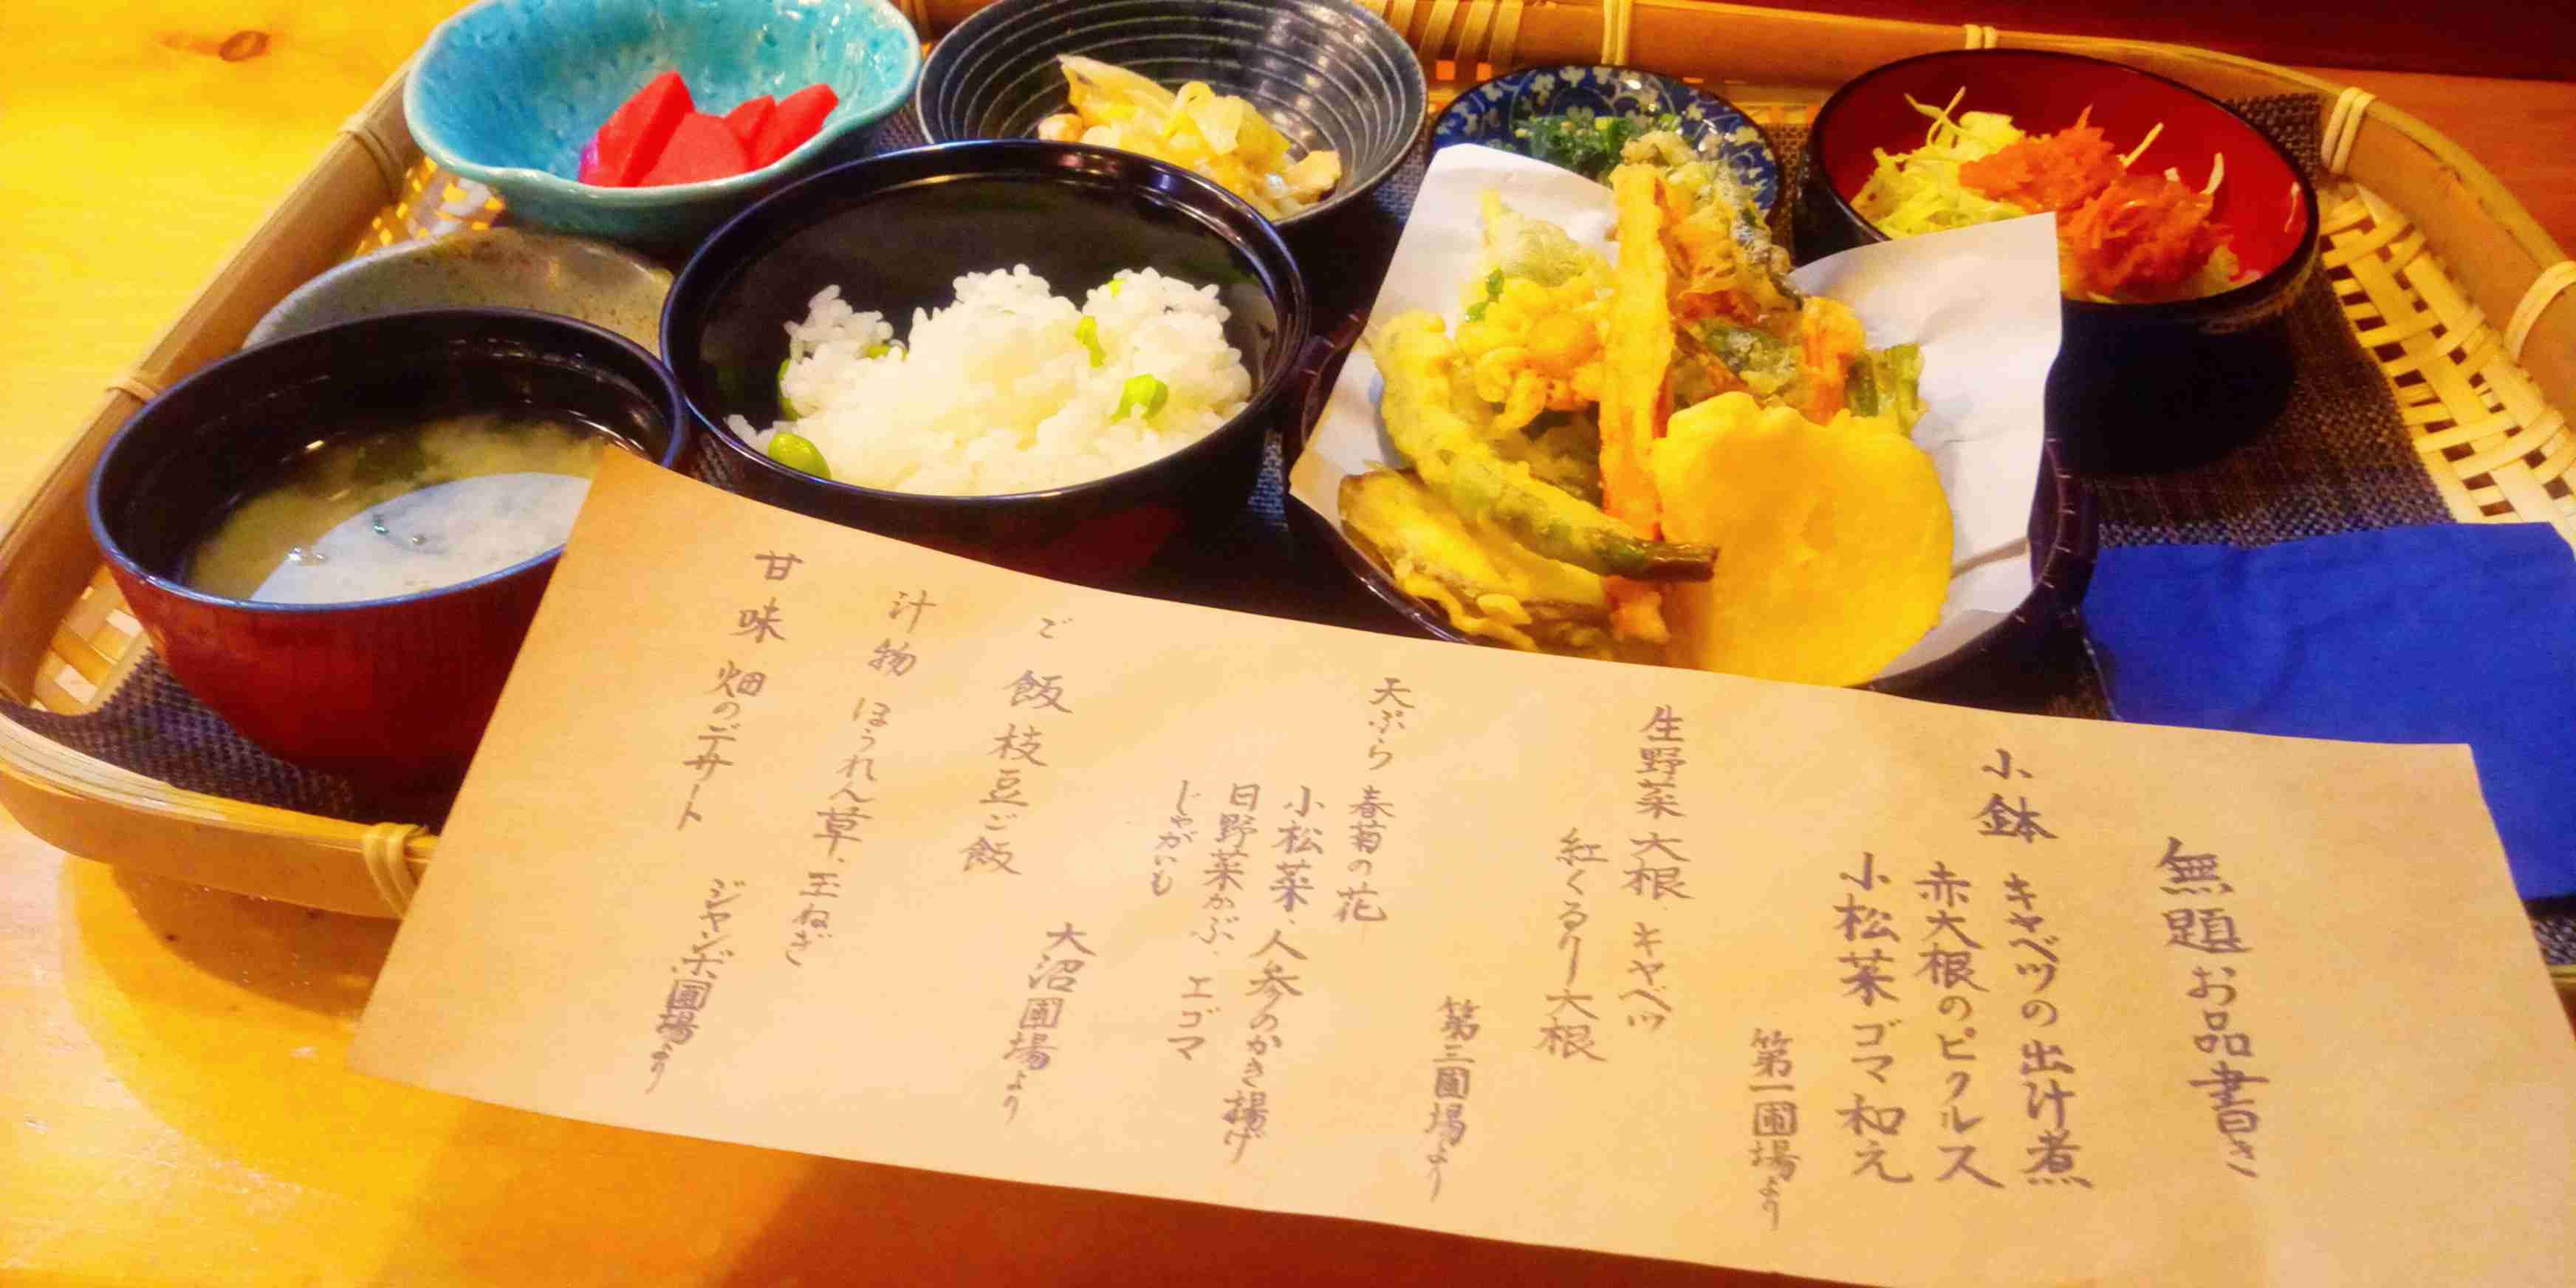 無題お品書き
小鉢 キャベツの出汁煮
赤大根のピクルス
小松菜ゴマ和え
第一圃場より
生野菜 大根、キャベツ
紅くるり大根
第三圃場より
天ぷら 春菊の花
小松菜、人参のかき揚げ
日野菜かぶ、エゴマ
じゃがいも
大沼圃場より
ご飯 枝豆ご飯
汁物 ほうれん草、玉ねぎ
ジャンボ圃場より
甘味 畑のデザート